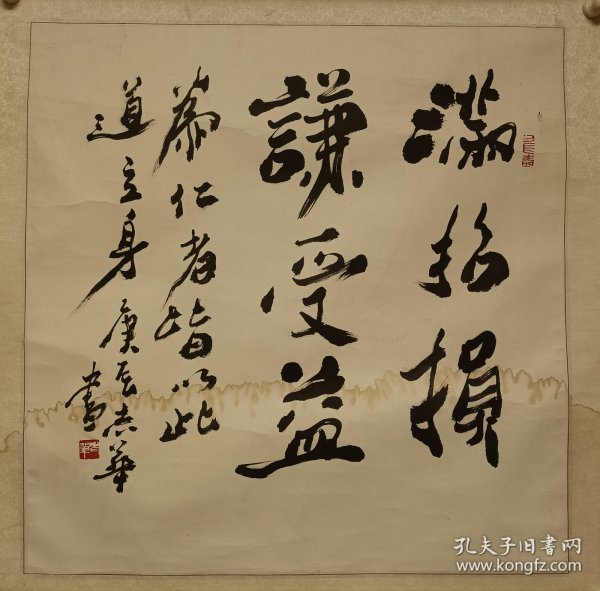 满招损
謙受益
慕仁者皆以此
道立身 庚辰志華
書
孔夫子旧書网
www.kongfz.com